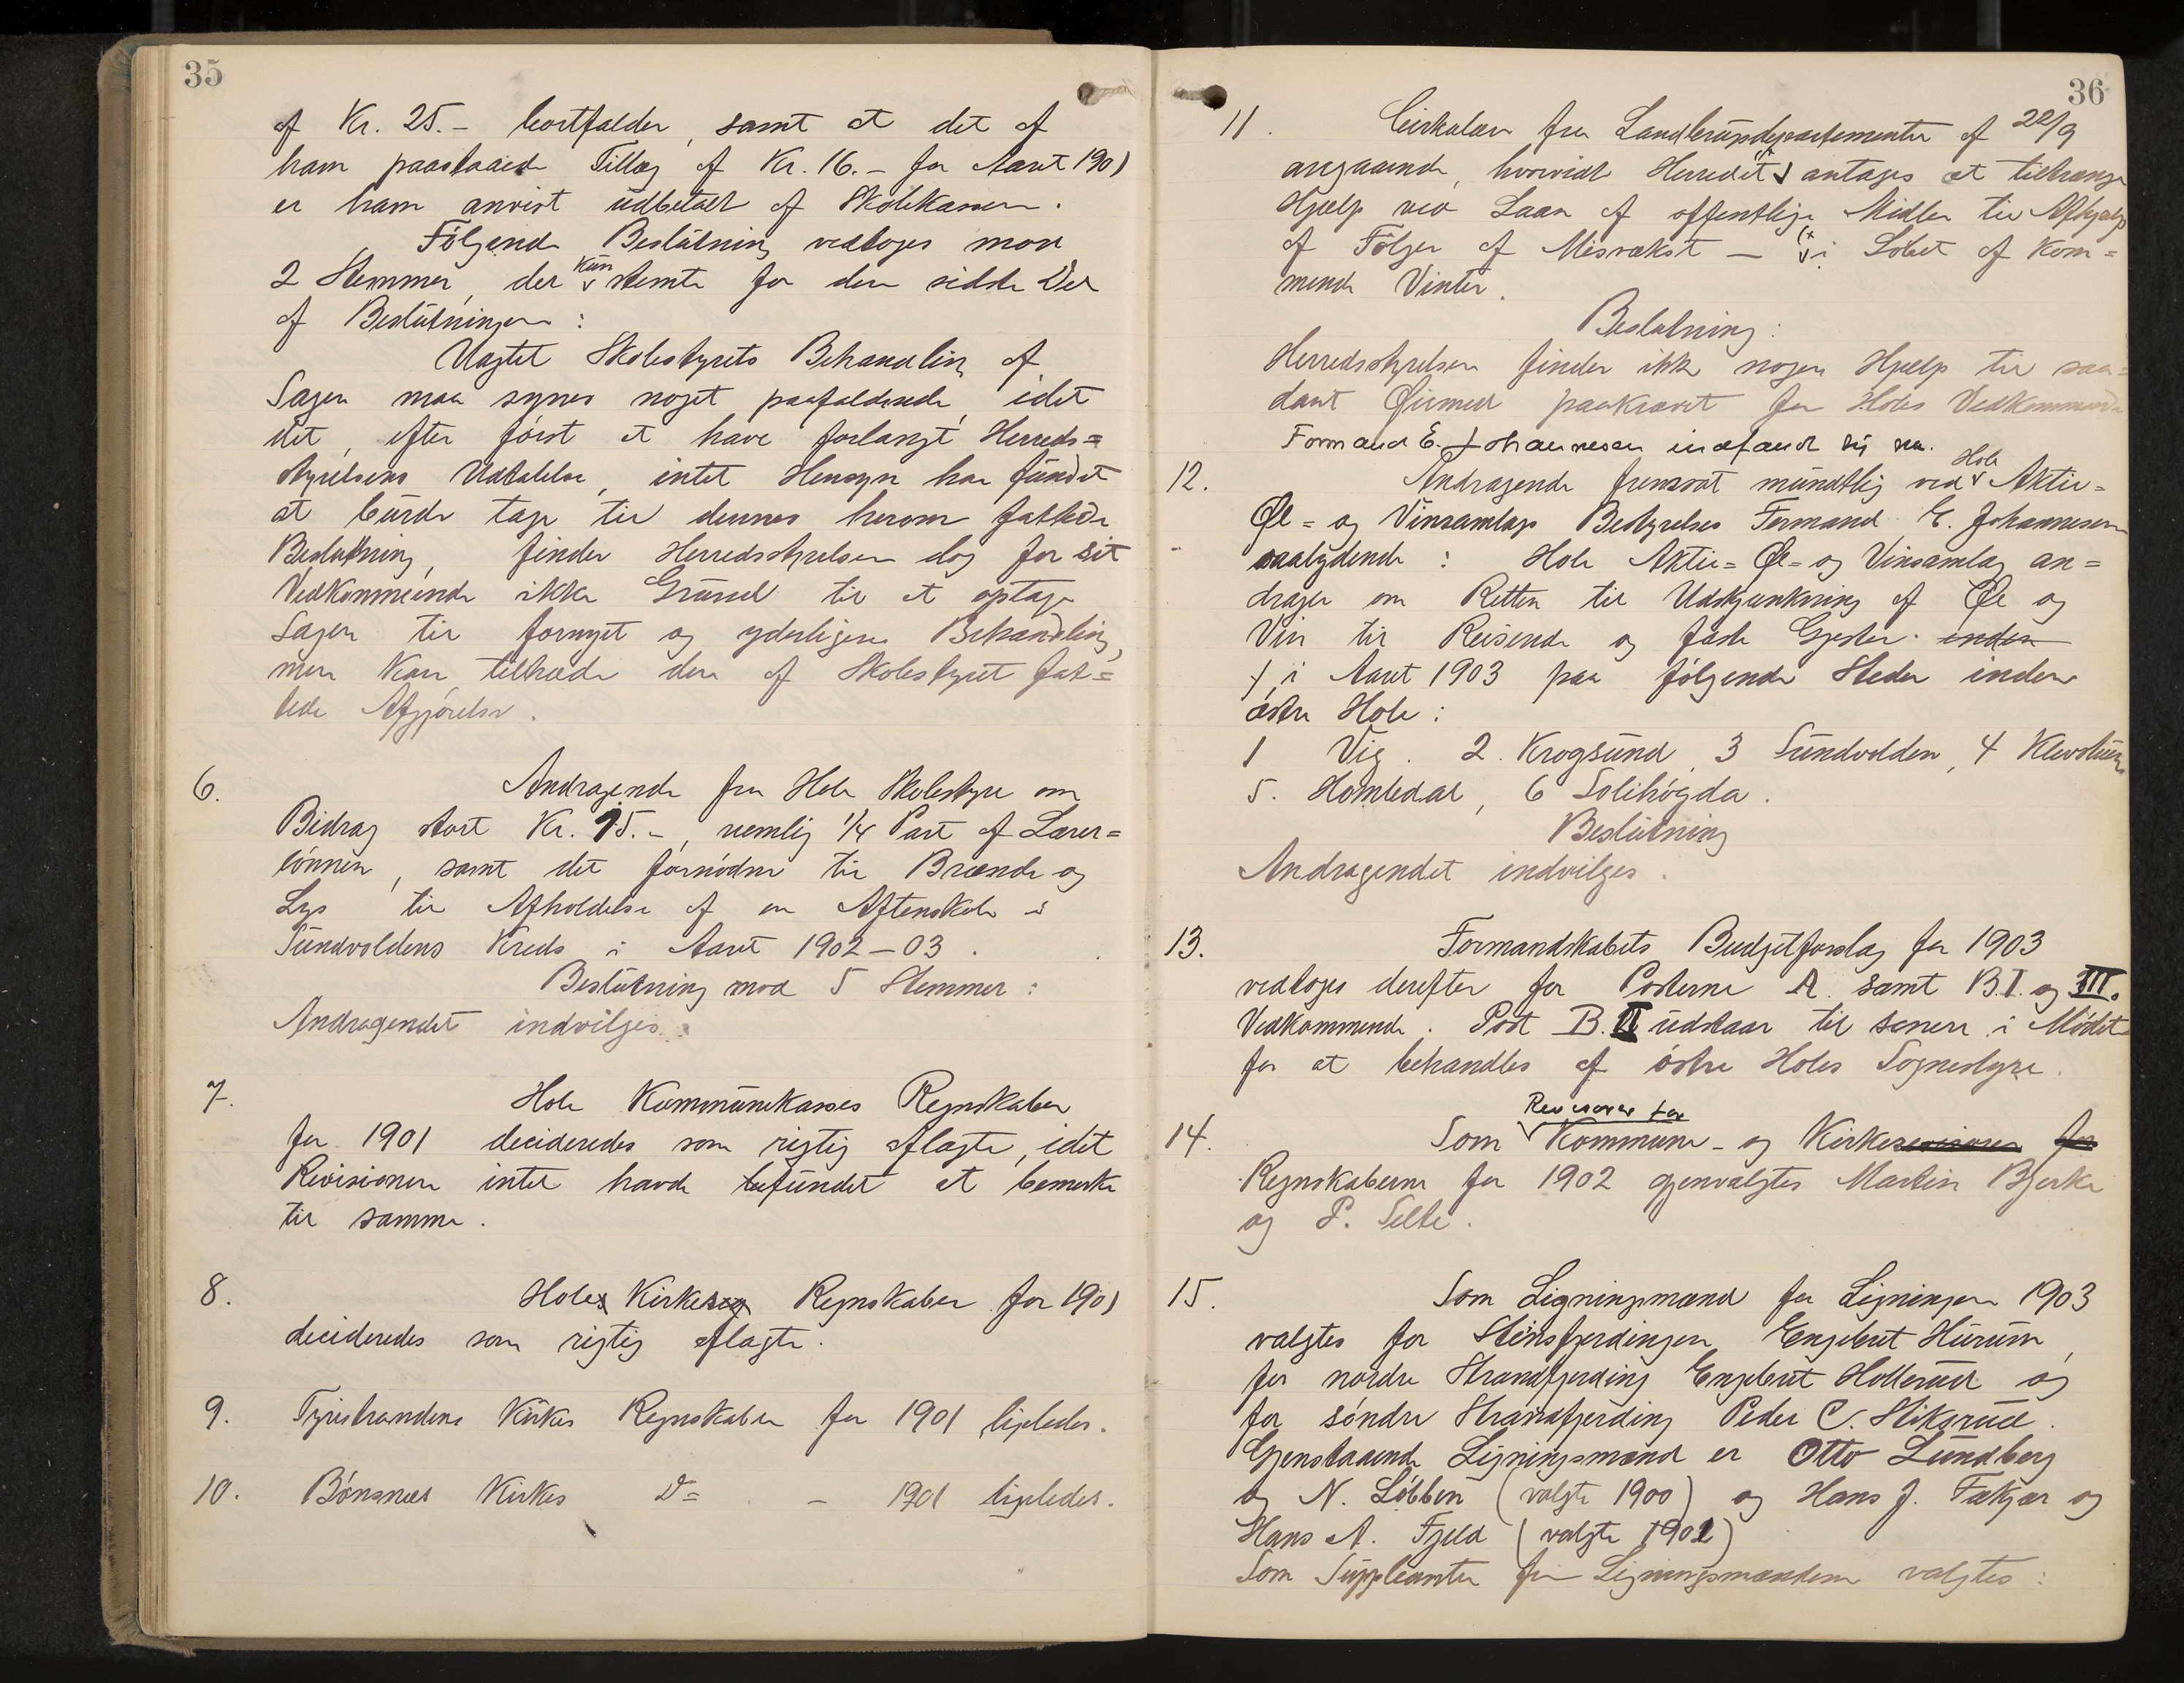 35
af Kr. 25.- bortfalder, samt at det af
ham paastaaede Tillæg af Kr. 16.- for Aaret 1901
er ham anvist udbetalt af Skolekassen.
Følgende Beslutning vedtoges mod
2 Stemmer, der kun stemte for den sidste Del
af Beslutningen:
Uagtet Skolestyrets Behandling af
Sagen maa synes noget paafaldende, idet
det, efter først at have forlangt Herreds=
styrelsens Udtalelse, intet Hensyn har fundet
at burde tage til dennes herom fattede
Beslutning, finder Herredsstyrelsen dog for sit
Vedkommende ikke Grund til at optage
Sagen til fornyet og yderligere Behandling,
men kan tiltræde den af Skolestyret fat=
tede Afgjørelse.
6. Andragende fra Hole Skolestyre om
Bidrag stort Kr. 75.-, nemlig 1/4 Part af Lærer=
lønnen, samt det fornødne til Brænde og
Lys til Afholdelse af en Aftenskole i
Sundvoldens Kreds i Aaret 1902-03.
Beslutning mod 5 Stemmer:
Andragendet indvilges.
7. Hole Kommunekasses Regnskaber
for 1901 decideredes som rigtig aflagte, idet
Revisionen intet havde befundet at bemerke
til samme.
8. Holes Kirkes Regnskaber for 1901
decideredes som rigtig aflagte.
9. Tyristrandens Kirkes Regnskaber for 1901 ligeledes.
10. Bønsnes Kirkes D= - 1901 ligeledes.
36
11. Cirkulære fra Landbrugsdepartementet af 22/9
angaaende, hvorvidt Herredet antages at tiltrænge
Hjælp ved Laan af offentlige Midler til Afhjælp
af Følger af Misvækst — i Løbet af kom=
mende Vinter.
Beslutning:
Herredsstyrelsen finder ikke nogen Hjælp til saa=
dant Øiemed paakrævet for Holes Vedkommende
Formand E. Johannesen indfandt sig nu.
12. Andragende fremsat mundtlig ved Hole Aktie=
Øl= og Vinsamlags Bestyrelses Formand E. Johannesen
saalydende: Hole Aktie= Øl= og Vinsamlag an=
drager om Retten til Udskjænkning af Øl og
Vin til Reisende og faste Gjester inden
i Aaret 1903 paa følgende Steder inden
østre Hole:
1 Vig. 2. Krogsund, 3 Sundvolden, 4 Klevstuen,
5. Homledal, 6 Solihøgda.
Beslutning
Andragendet indvilges.
13. Formandskabets Budgetforslag for 1903
vedtoges derefter for Posterne A. samt B.I. og III.
Vedkommende. Post B.II udstaar til senere i Mødet
for at behandles af østre Holes Sognestyre.
14. Som Revisorer for Kommune- og Kirkerevisorer for
Regnskaberne for 1902 gjenvalgtes Martin Bjerke
og P. Selte.
15. Som Ligningsmænd for Ligningen 1903
valgtes for Stensfjerdingen Engebret Hurum,
for nordre Strandfjerding Engebret Hollerud og
for søndre Strandfjerding Peder C. Stiksrud.
Gjenstaaende Ligningsmænd er Otto Lundberg
og N. Løbben (valgte 1900) og Hans J. Fækjær og
Hans A. Fjeld (valgte 1901)
Som Suppleanter for Ligningsmændene valgtes: